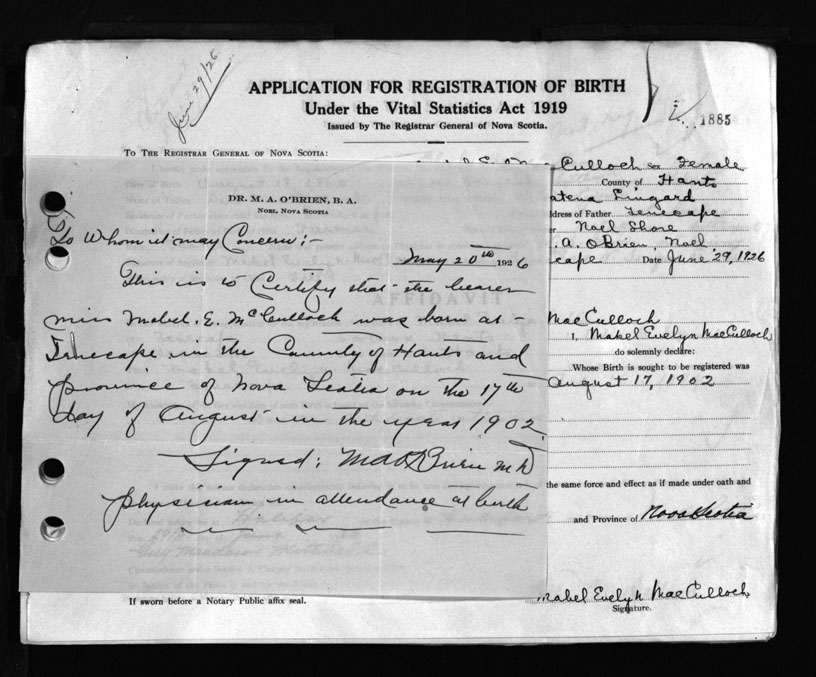 June 29/26
APPLICATION FOR REGISTRATION OF BIRTH
Under the Vital Statistics Act 1919
Issued by The Registrar General of Nova Scotia.
1885
To The Registrar General of Nova Scotia:
Culloch Sex Female
County of Hants
Lingard
ddress of Father Tenecape
Noel Shore
. A. O'Brien, Noel.
cape Date June 29, 1926
DR. M. A. O'BRIEN, B. A.
Noel, Nova Scotia
To Whom it may Concern:-
May 20th 1926
This is to Certify that the bearer
Miss Mabel. E. McCulloch was born at -
Tenecape in the County of Hants and
province of Nova Scotia on the 17th
day of August in the year 1902.
Signed: M A O'Brien M D
physician in attendance at birth
MacCulloch
I, Mabel Evelyn MacCulloch
do solemnly declare:
Whose Birth is sought to be registered was
August 17, 1902
AFFIDAVIT
the same force and effect as if made under oath and
and Province of Nova Scotia
If sworn before a Notary Public affix seal.
Mabel Evelyn MacCulloch
Signature.